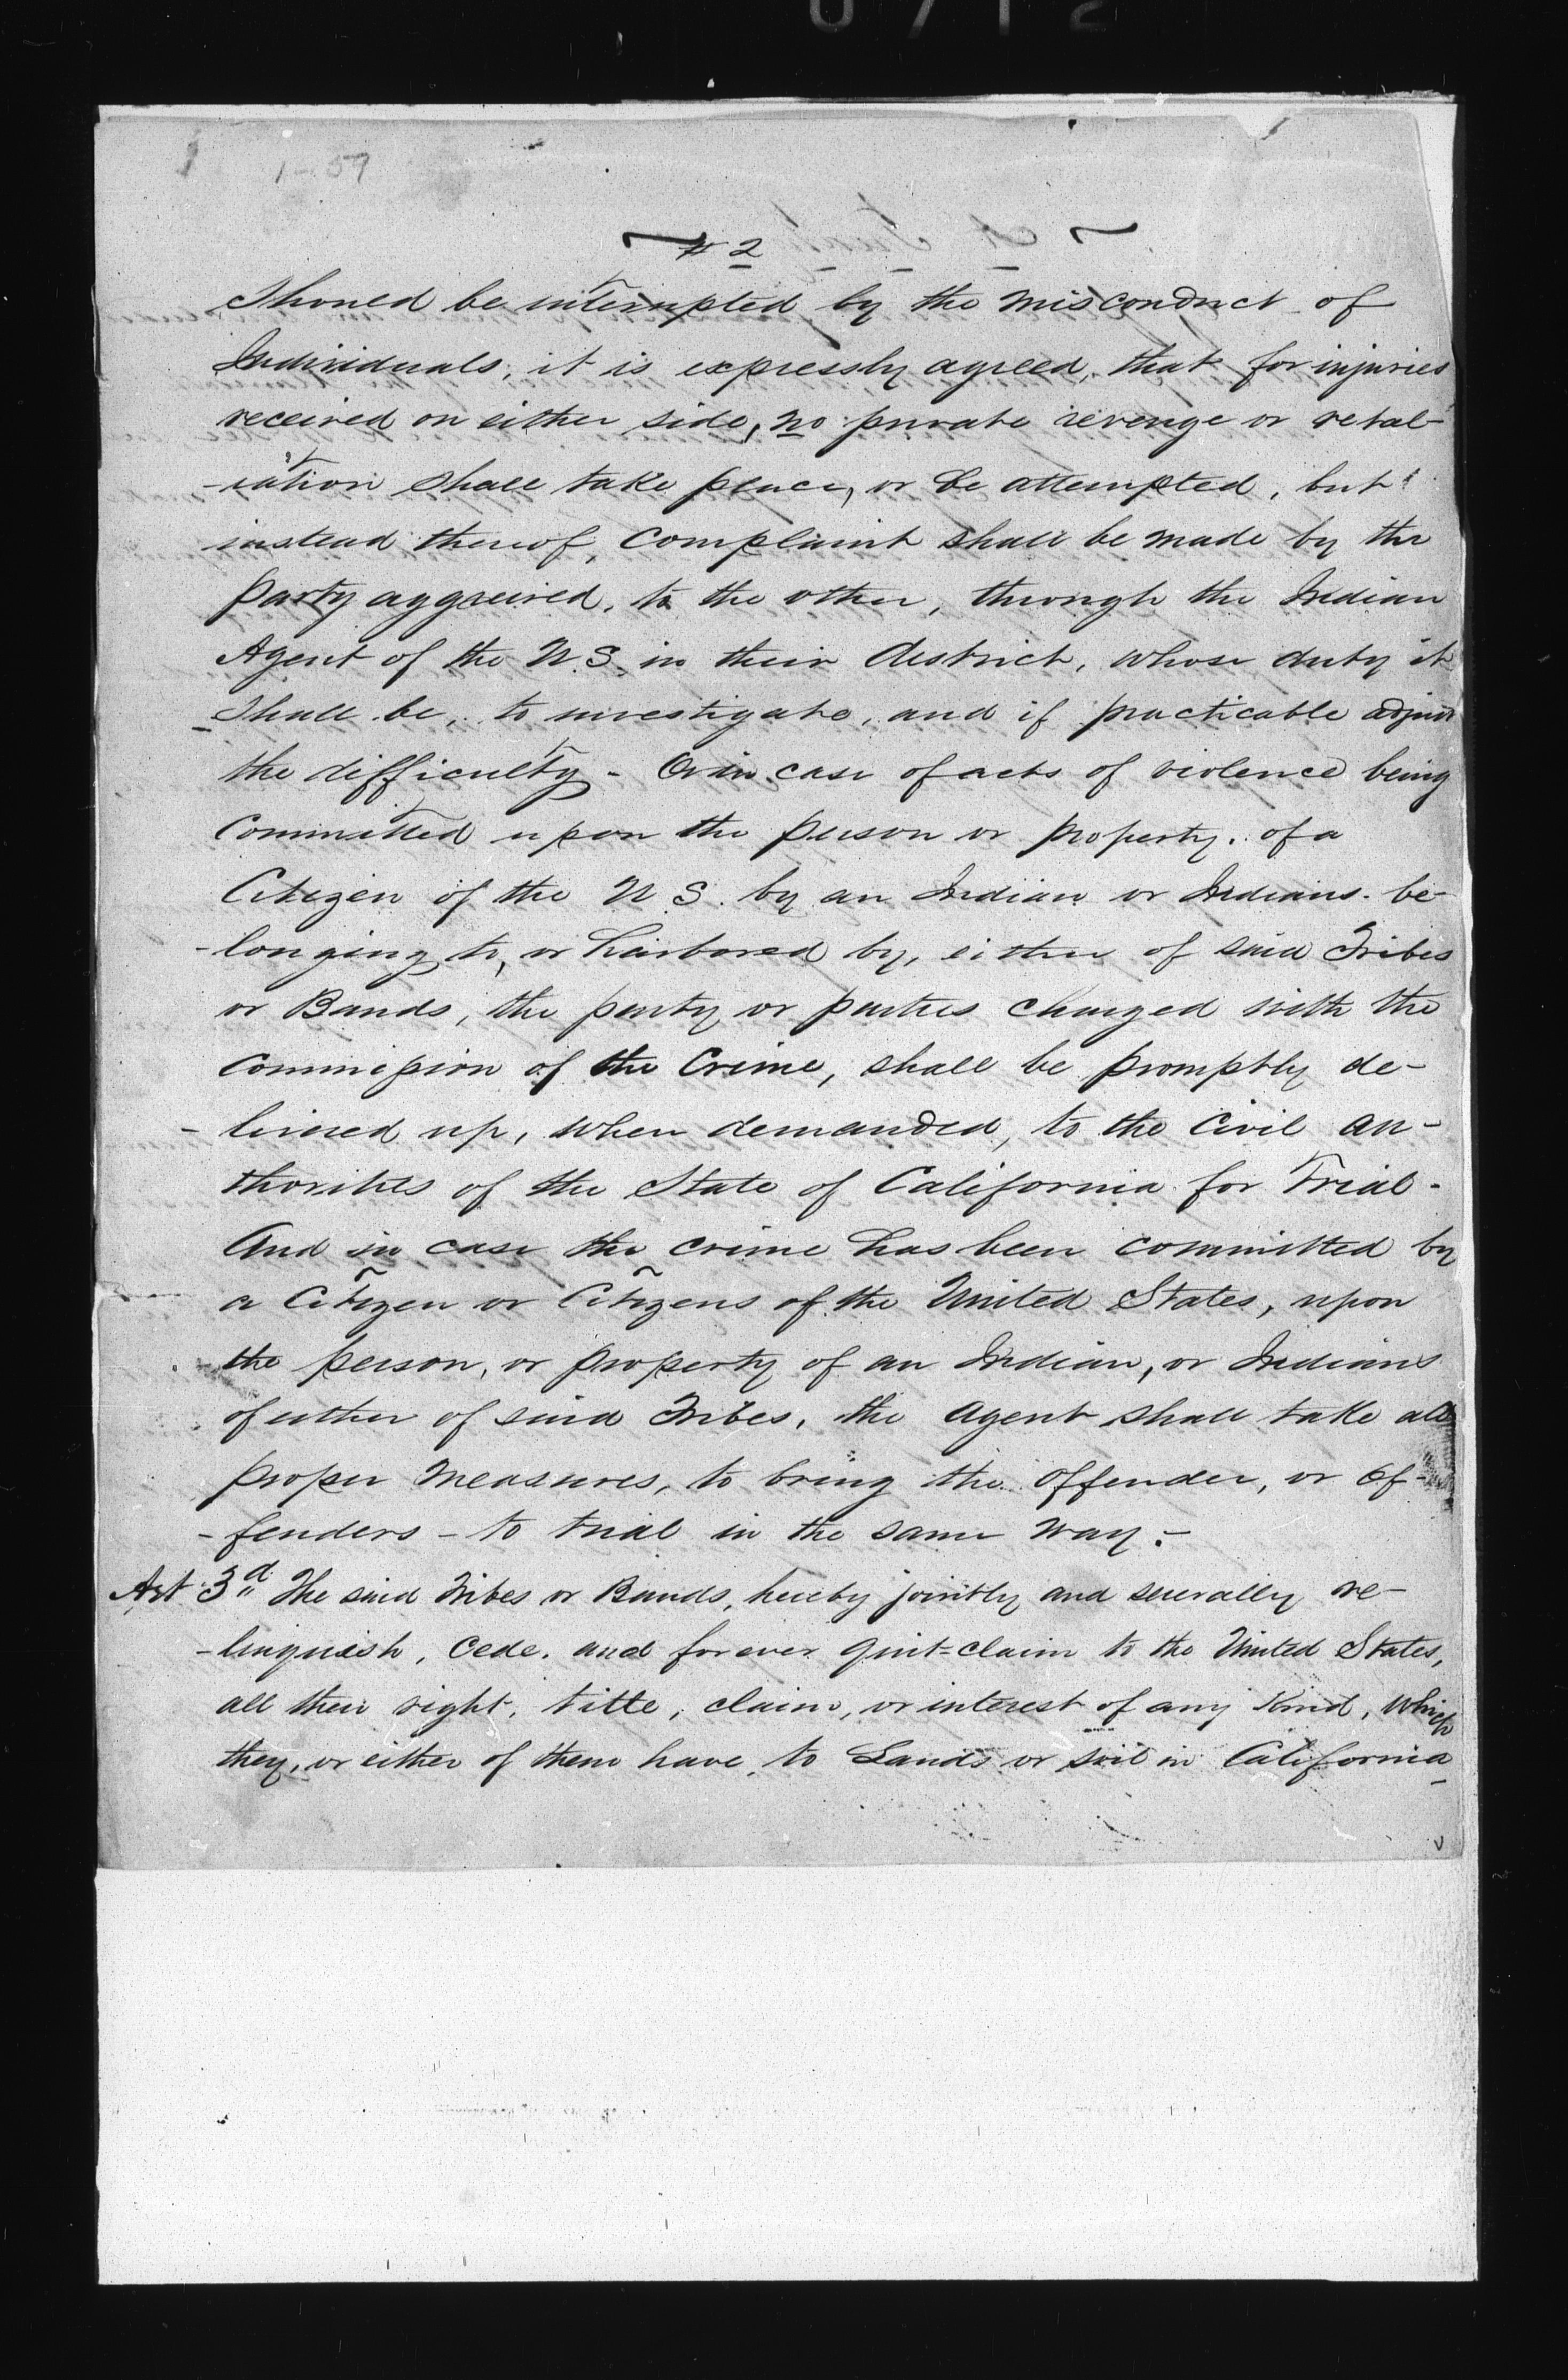 0712
1-57
# 2
Should be interrupted by the misconduct of
Individuals, it is expressly agreed, that for injuries
received on either side, no private revenge or retal-
-iation shall take place, or be attempted, but
instead thereof, Complaint shall be made by the
party aggreived, to the other, through the Indian
Agent of the U.S. in their District, whose duty it
Shall be, to investigate, and if practicable adjust
the difficulty - Or in case of acts of violence being
Committed upon the person or property, of a
Citizen of the U.S. by an Indian or Indians. be-
-longing to, or harbored by, either of said Tribes
or Bands, the party or parties charged with the
commission of the Crime, shall be promptly de-
-livered up, when demanded, to the Civil au-
thorities of the State of California for Trial -
And in case the crime has been committed by
a Citizen or Citizens of the United States, upon
the person, or property of an Indian, or Indians
of either of said Tribes, the Agent shall take all
proper measures, to bring the offender, or of-
-fenders - to trial in the same way. -
Art 3d The said Tribes or Bands, hereby jointly and severally re-
-linquish, cede, and forever quit-claim to the United States,
all their right, title, claim, or interest of any kind, which
they, or either of them have, to Lands or soil in California